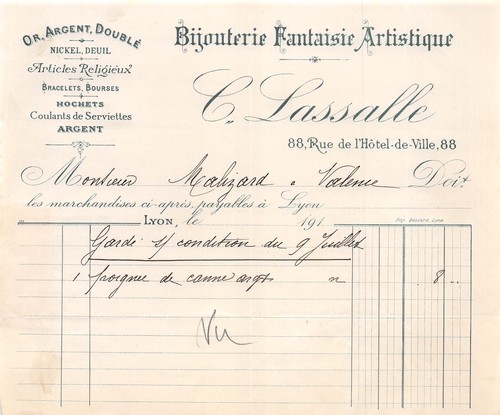 Or, Argent, Doublé
Nickel, Deuil
Articles Religieux
Bracelets, Bourses
Hochets
Coulants de Serviettes
Argent
Bijouterie Fantaisie Artistique
C. Lassalle
88, Rue de l'Hôtel-de-Ville, 88
Monsieur Malizard à Valence Doit
les marchandises ci-après, payables à Lyon
Lyon, le 191
Gardé s/ condition du 9 Juillet
1 poignée de canne argt n 8 "
Vu